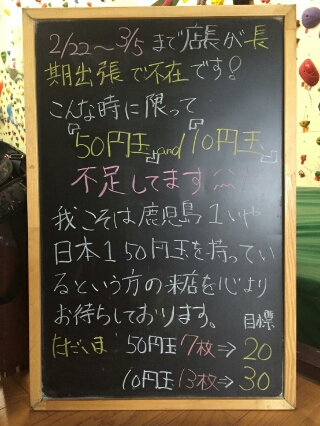 2/22〜3/5まで店長が長
期出張で不在です!
こんな時に限って
『50円玉』and『10円玉』
不足してます
我こそは鹿児島1いや
日本1 50円玉を持ってい
るという方の来店を心より
お待ちしております。
目標
ただいま 50円玉 7枚⇒20
10円玉 13枚⇒30